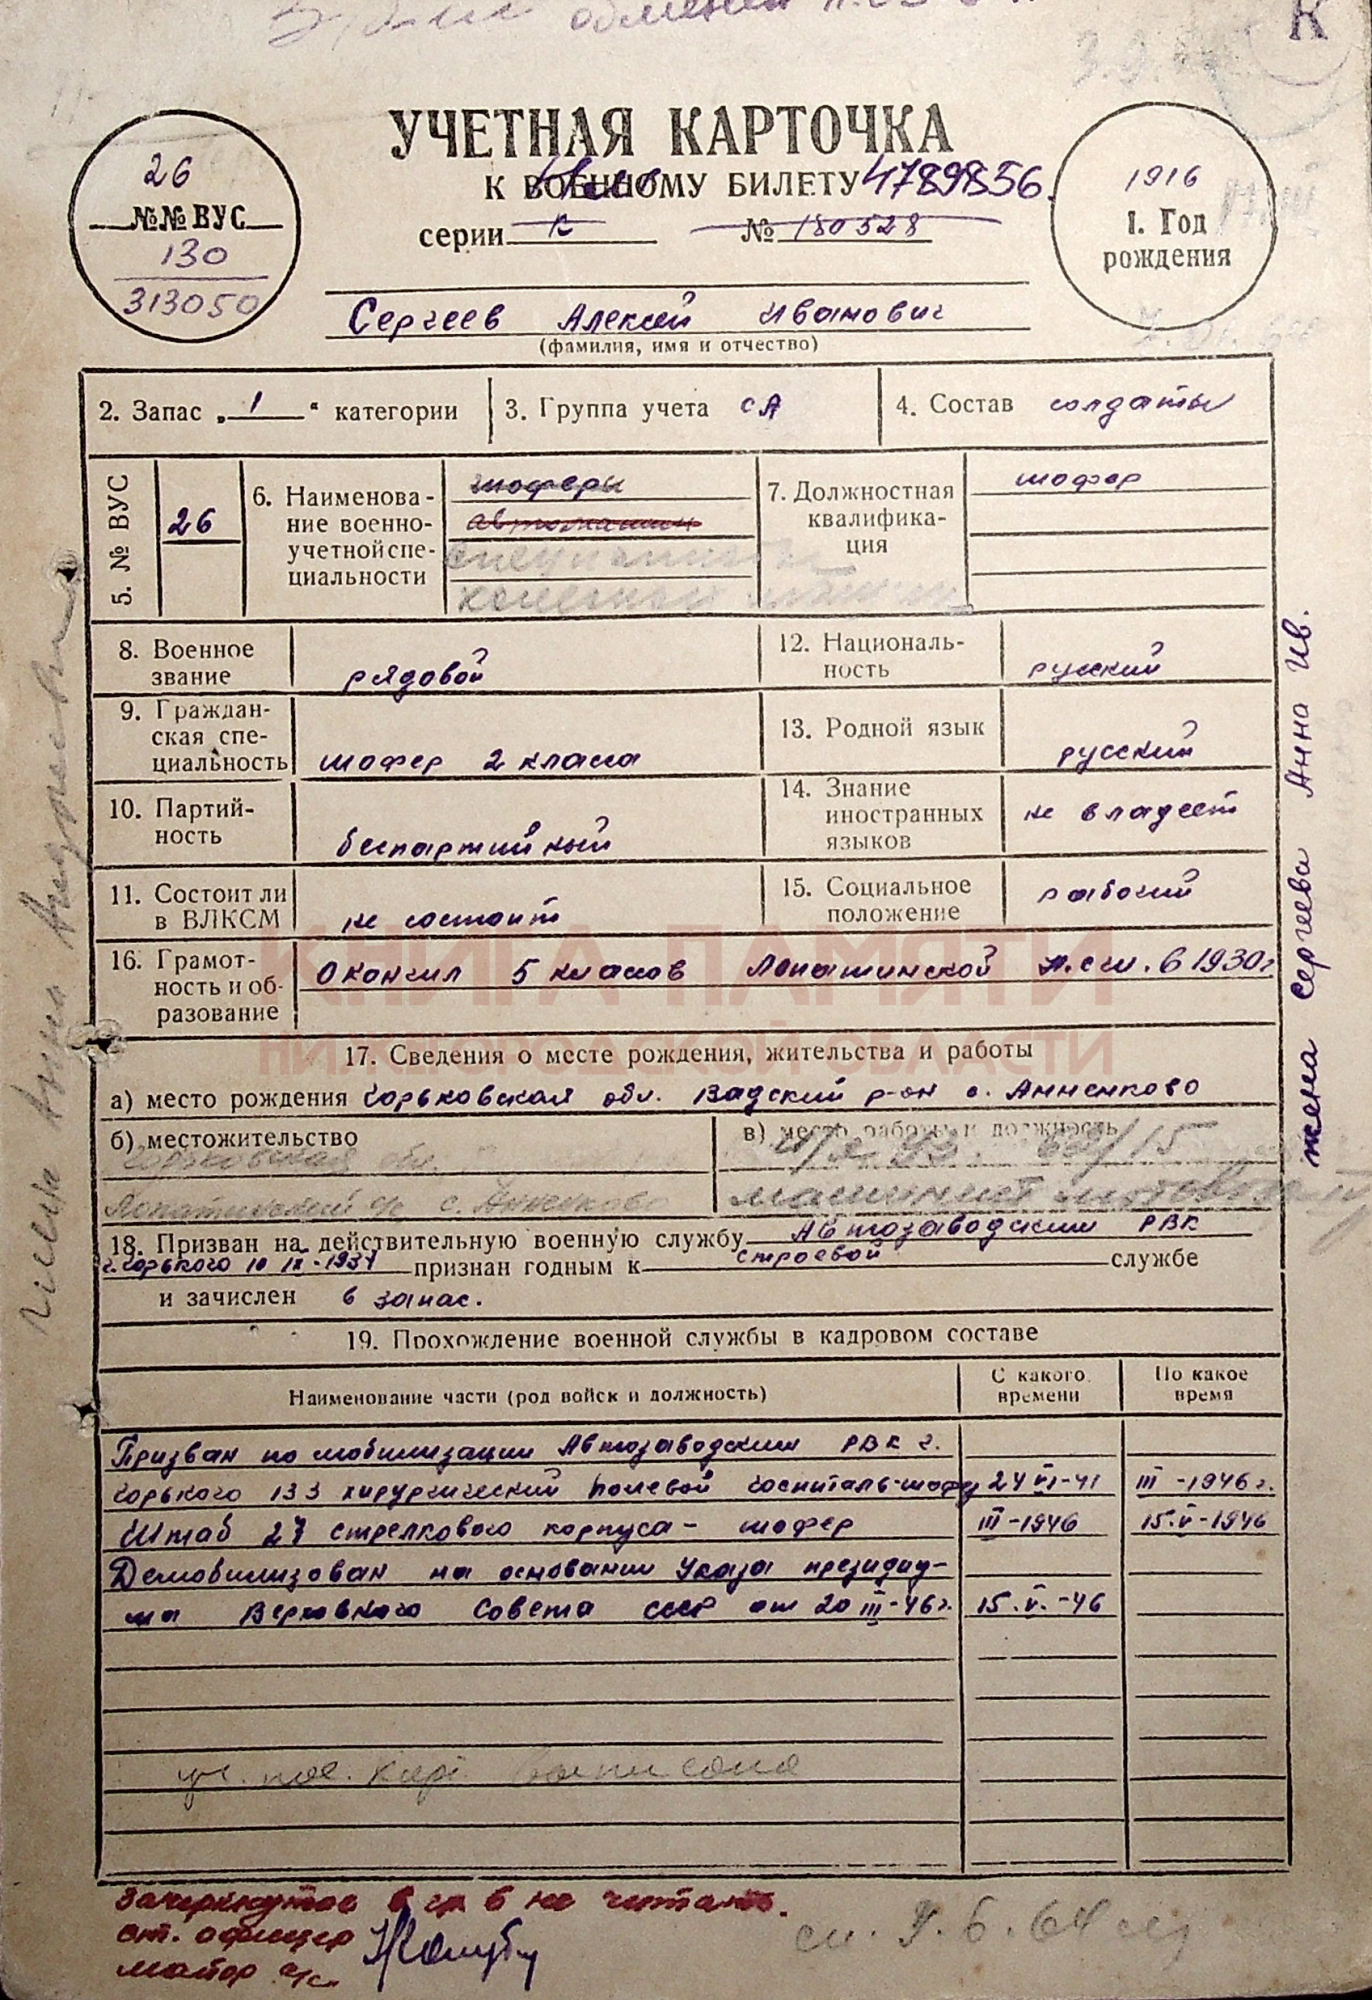 К
УЧЕТНАЯ КАРТОЧКА
К ВОЕННОМУ БИЛЕТУ 4789856.
серии К № 180528
26
№№ ВУС
130
313050
1916
1. Год
рождения
Сергеев Алексей Иванович
(фамилия, имя и отчество)
2. Запас „1“ категории
3. Группа учета СА
4. Состав солдаты
5. № ВУС
26
6. Наименова-
ние военно-
учетной спе-
циальности
шоферы
автомашин
специальных
колесных машин
7. Должностная
квалифика-
ция
шофер
8. Военное
звание
рядовой
12. Националь-
ность
русский
9. Граждан-
ская спе-
циальность
шофер 2 класса
13. Родной язык
русский
10. Партий-
ность
беспартийный
14. Знание
иностранных
языков
не владеет
11. Состоит ли
в ВЛКСМ
не состоит
15. Социальное
положение
рабочий
16. Грамот-
ность и об-
разование
Окончил 5 классов Лопатинской н.с.ш. в 1930г
КНИГА ПАМЯТИ
НИЖЕГОРОДСКОЙ ОБЛАСТИ
17. Сведения о месте рождения, жительства и работы
а) место рождения Горьковская обл. Вадский р-он с. Анненково
б) местожительство
Горьковская обл.
Лопатинский с/с с. Анненково
в) место работы и должность
63/15
машинист мотовоза
18. Призван на действительную военную службу Автозаводским РВК
г. Горького 10 IX-1937 признан годным к строевой службе
и зачислен в запас.
19. Прохождение военной службы в кадровом составе
Наименование части (род войск и должность)
С какого времени
По какое время
Призван по мобилизации Автозаводским РВК г.
Горького 133 хирургический полевой госпиталь-шофер 24 VI-41 III-1946г.
Штаб 27 стрелкового корпуса - шофер III-1946 15.V-1946
Демобилизован на основании Указа президиу-
ма Верховного Совета СССР от 20 III-46г. 15.V.-46
выписана
Зачеркнутое в гр 6 не читать.
ст. офицер
майор а/с
жена Сергеева Анна Ив.
Анна Андреевна